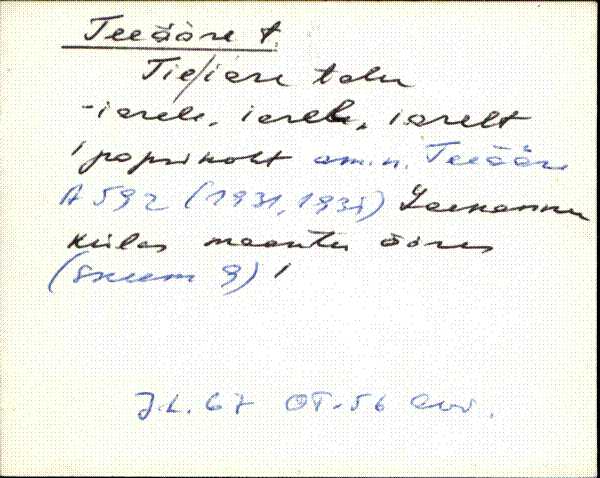 Teeääre t.
Tie/iäre talu
-iärele, iäreh, iärelt
/ popsikoht am.n. Teeääre
A 592 (1931, 1935) Laekannu
külas maantee ääres
(Skeem 9) /
J.L. 67 OT-56